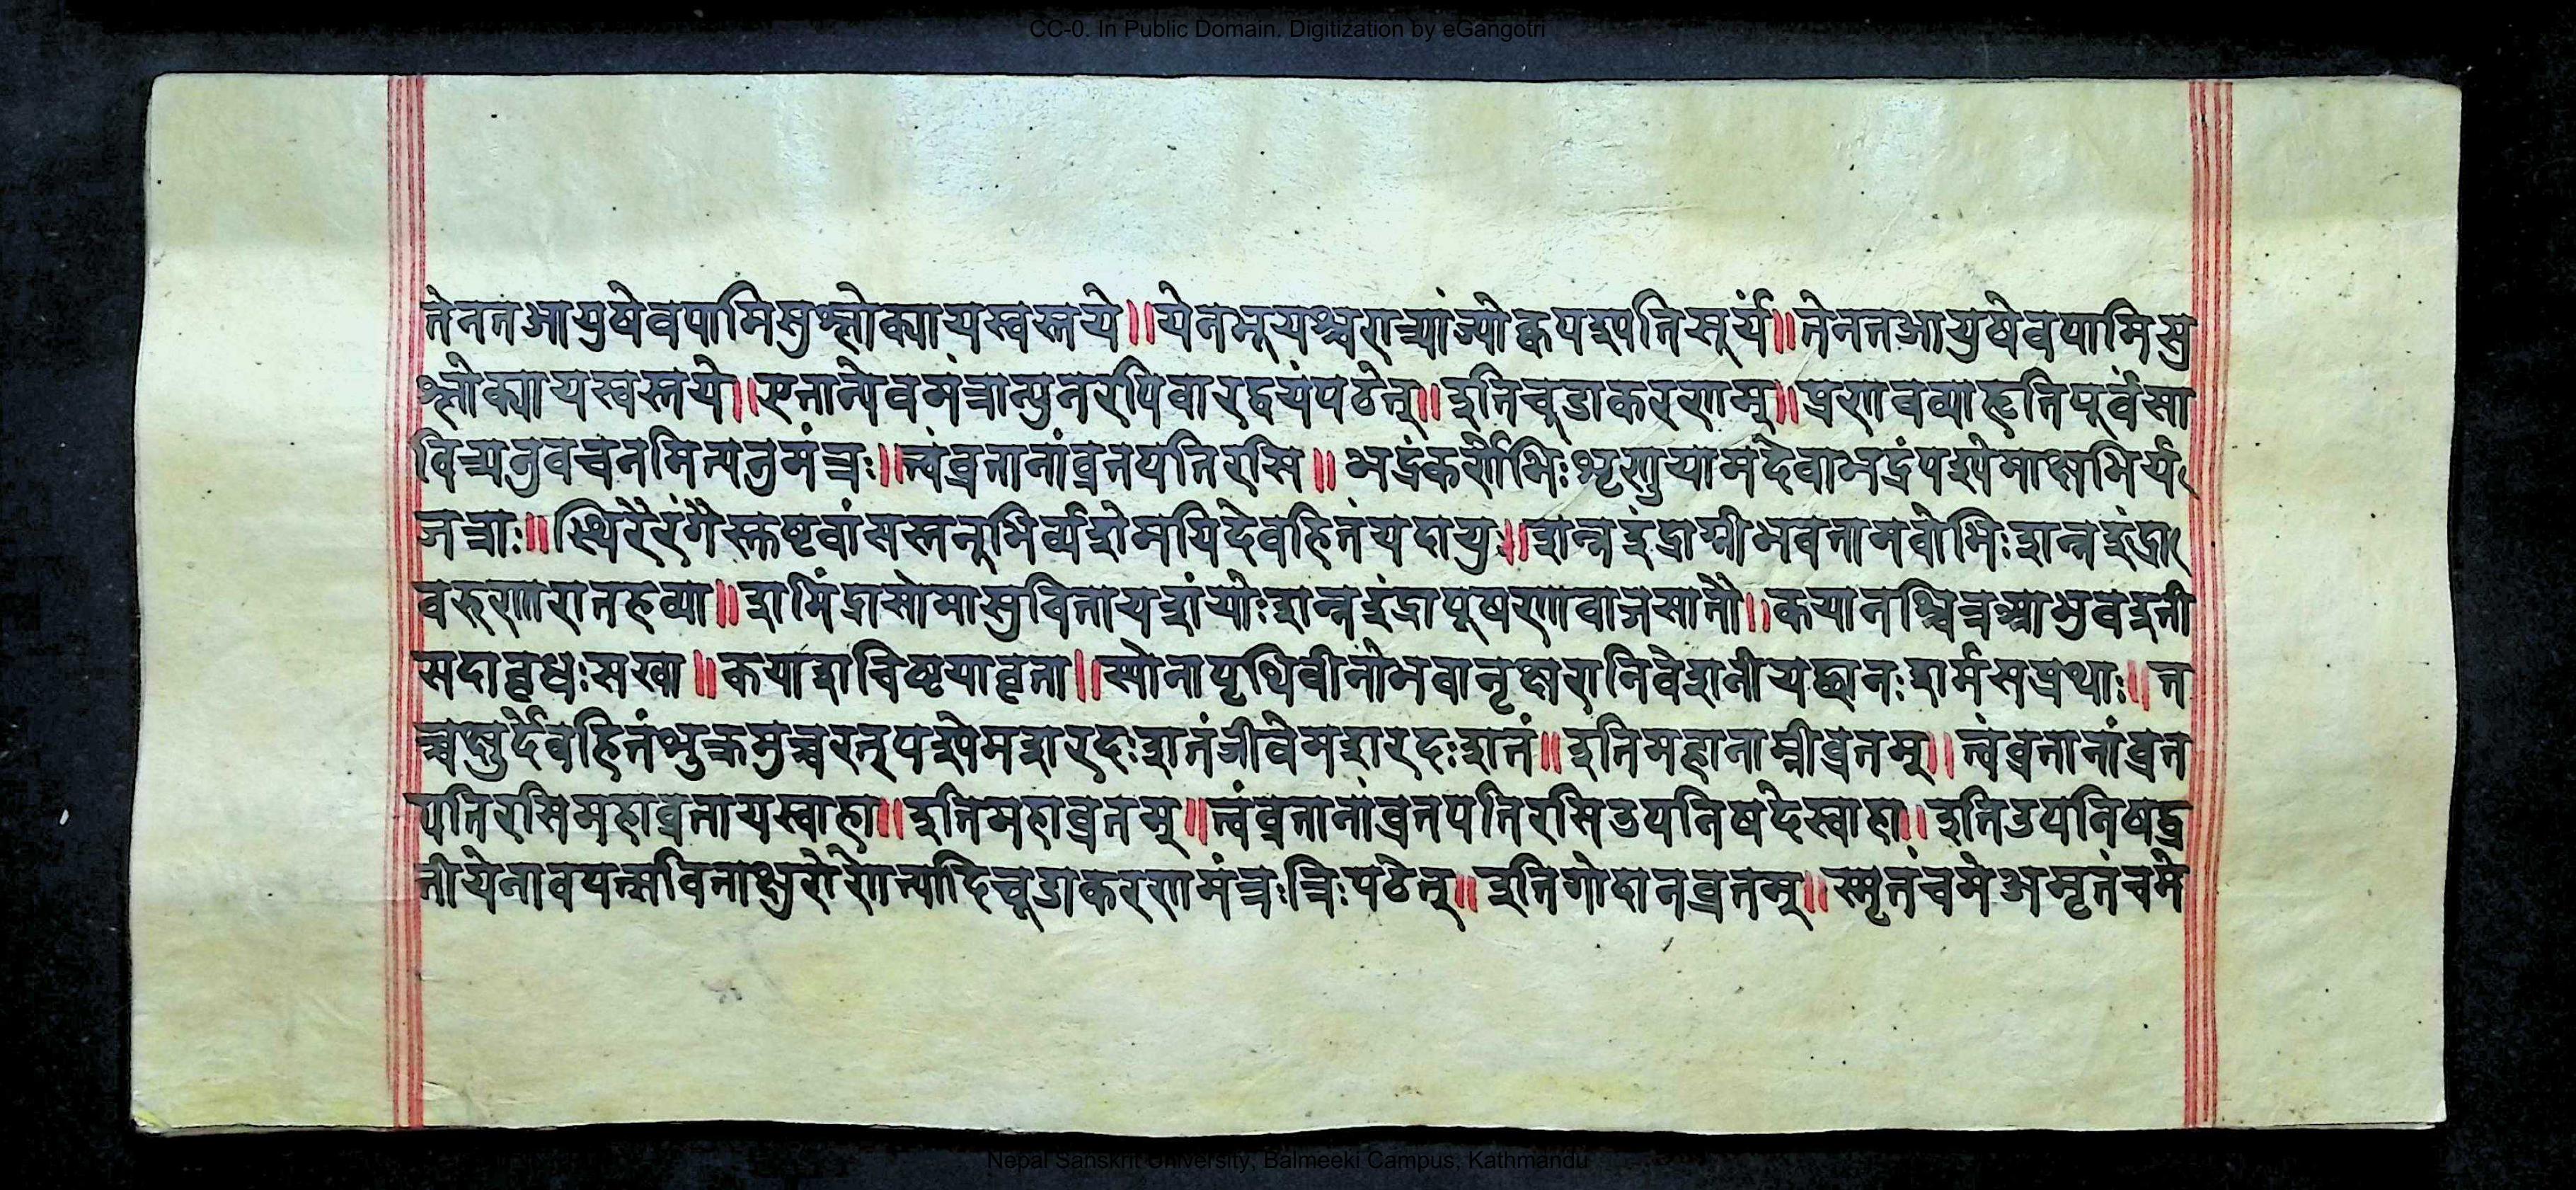 CC-0. In Public Domain. Digitization by eGangotri
तेनतआयुषेवपामिसुश्लोक्यायस्वस्तये॥येनभूयश्चरात्र्यांज्योक्चपश्यतिसूर्यं॥तेनतआयुषेवपामिसु
श्लोक्यायस्वस्तये॥एतान्येवमंत्रान्पुनरपिवारद्वयंपठेत्॥इतिचूडाकरणम्॥प्रणवव्याहृतिपूर्वंसा
वित्र्यनुवचनमित्यनुमंत्रः॥त्वंव्रतानांव्रतपतिरसि॥भद्रंकर्णेभिःशृणुयामदेवाभद्रंपश्येमाक्षभिर्य
जत्राः॥स्थिरैरंगैस्तुष्टवांसस्तनूभिर्व्यशेमयिदेवहितंयदायुः॥शन्नइंद्राग्नीभवतामवोभिःशन्नइंद्रा
वरुणारातहव्या॥शमिंद्रासोमासुवितायशंयोःशन्नइंद्रापूषणावाजसातौ॥कयानश्चित्रआभुवदूती
सदावृधःसखा॥कयाशचिष्टयावृता॥स्योनापृथिवीनोभवानृक्षरानिवेशनीयच्छानःशर्मसप्रथाः॥त
च्चक्षुर्देवहितंशुक्रमुच्चरत्पश्येमशरदःशतंजीवेमशरदःशतं॥इतिमहानाम्नीव्रतम्॥त्वंव्रतानांव्रत
पतिरसिमहाव्रतायस्वाहा॥इतिमहाव्रतम्॥त्वंव्रतानांव्रतपतिरसिउपनिषदेस्वाहा॥इतिउपनिषद्व्र
तीयेनावपत्सविताक्षुरेणेत्यादिचूडाकरणमंत्रःत्रिःपठेत्॥इतिगोदानव्रतम्॥स्मृतंचमेअमृतंचमे
Nepal Sanskrit University, Balmeeki Campus, Kathmandu